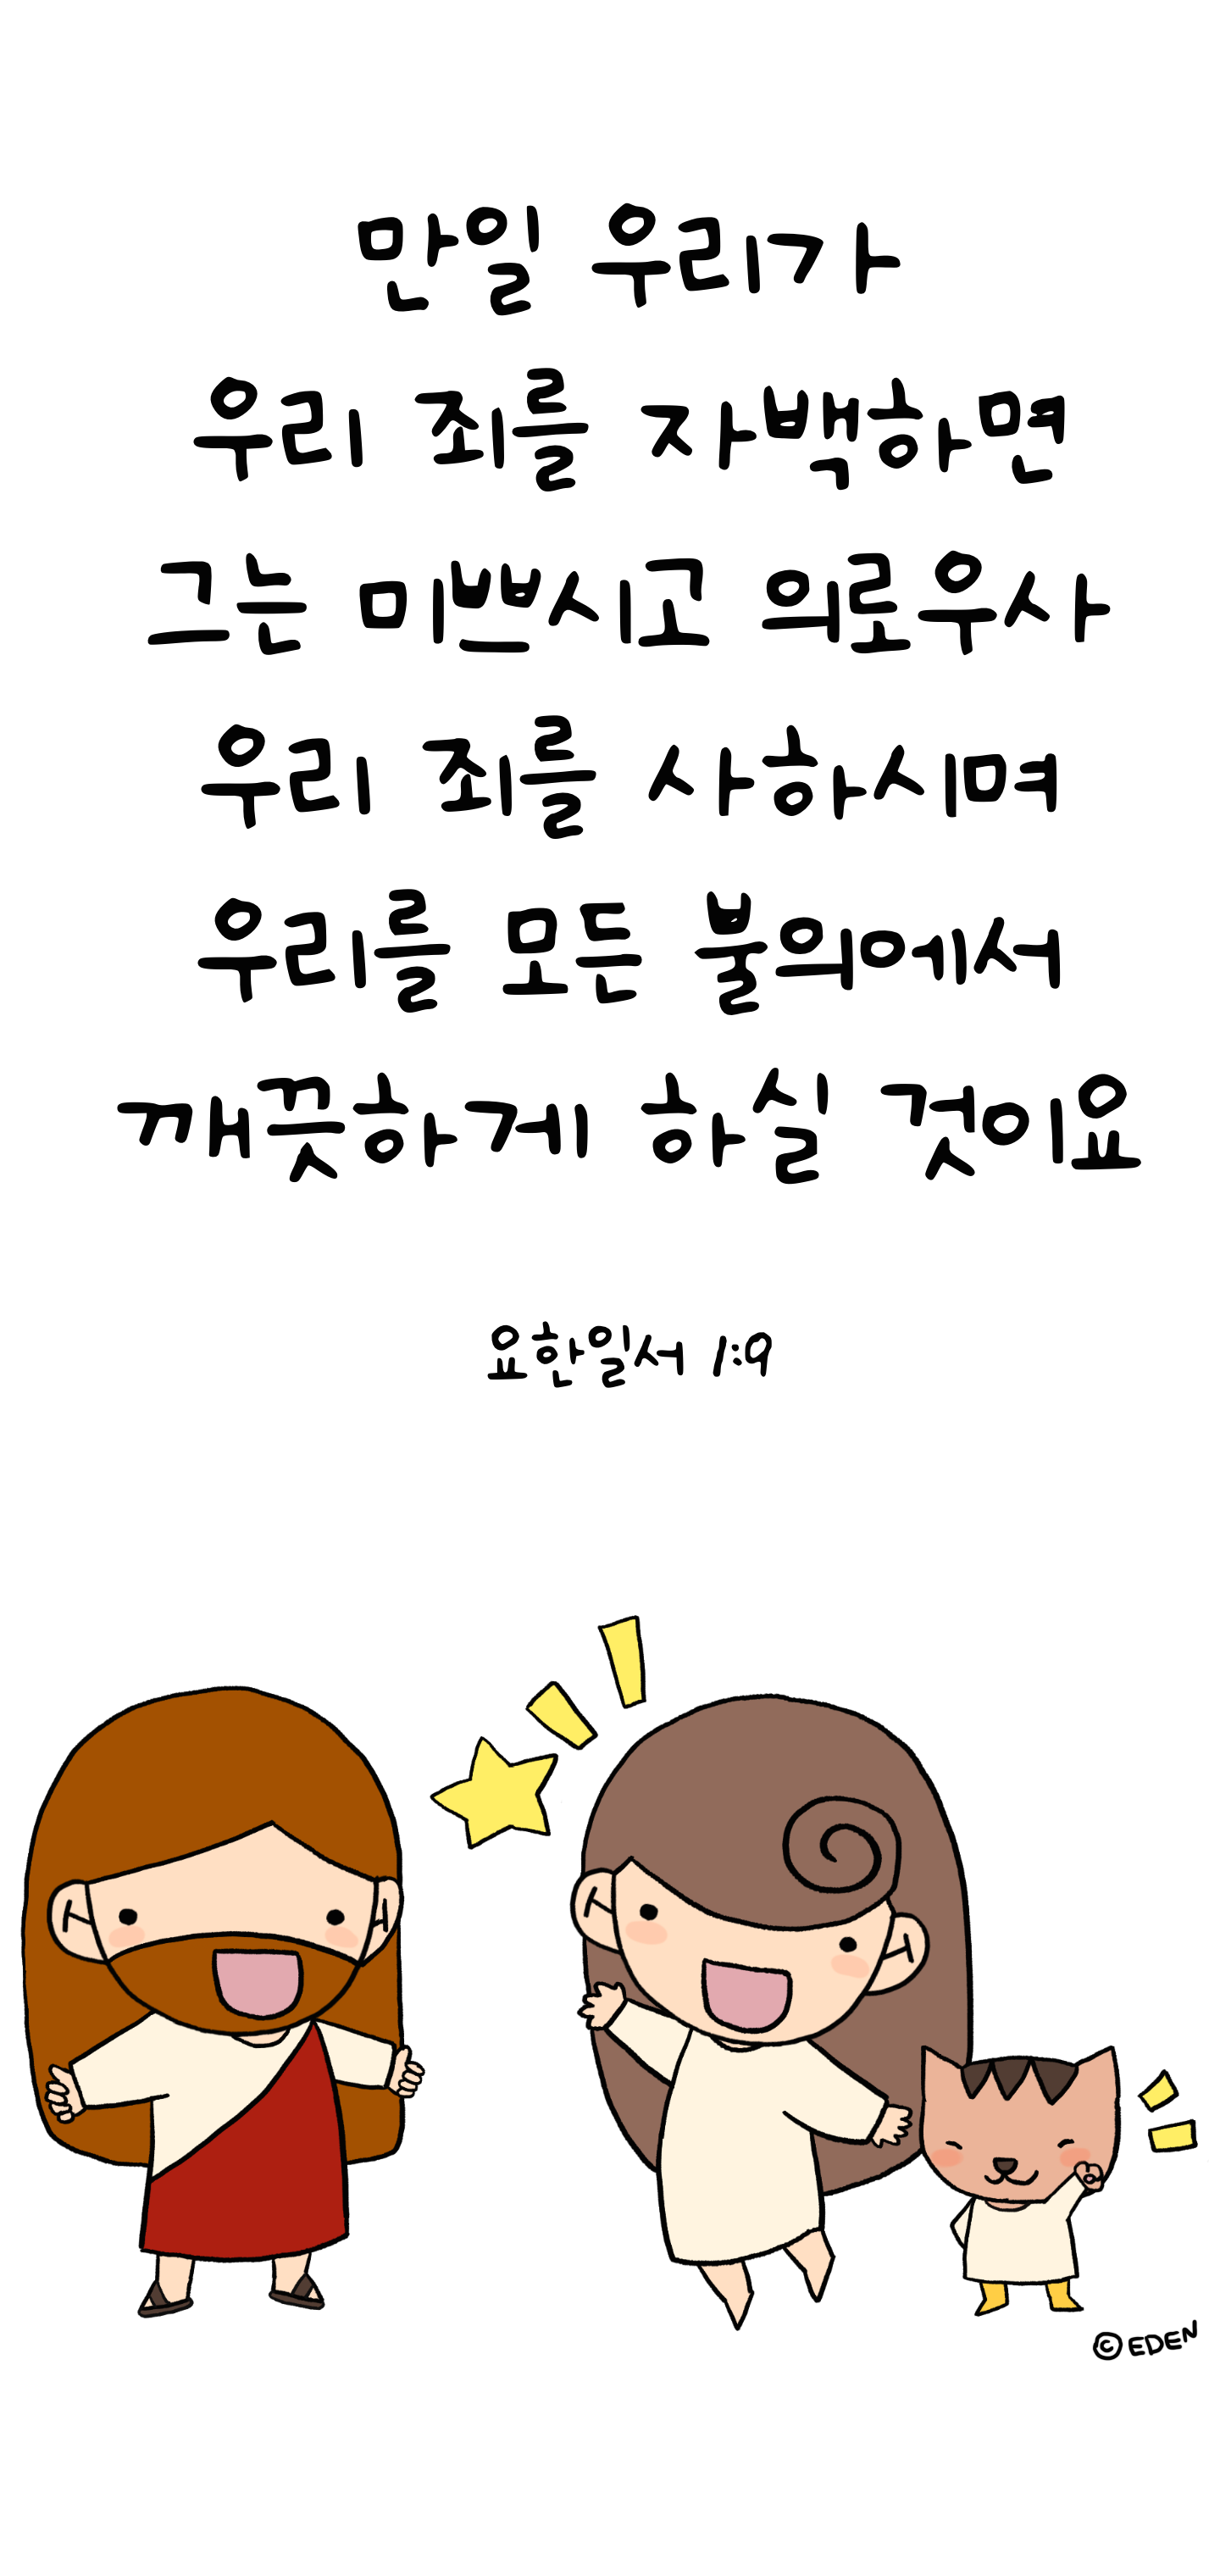 만일 우리가
우리 죄를 자백하면
그는 미쁘시고 의로우사
우리 죄를 사하시며
우리를 모든 불의에서
깨끗하게 하실 것이요
요한일서 1:9
© EDEN